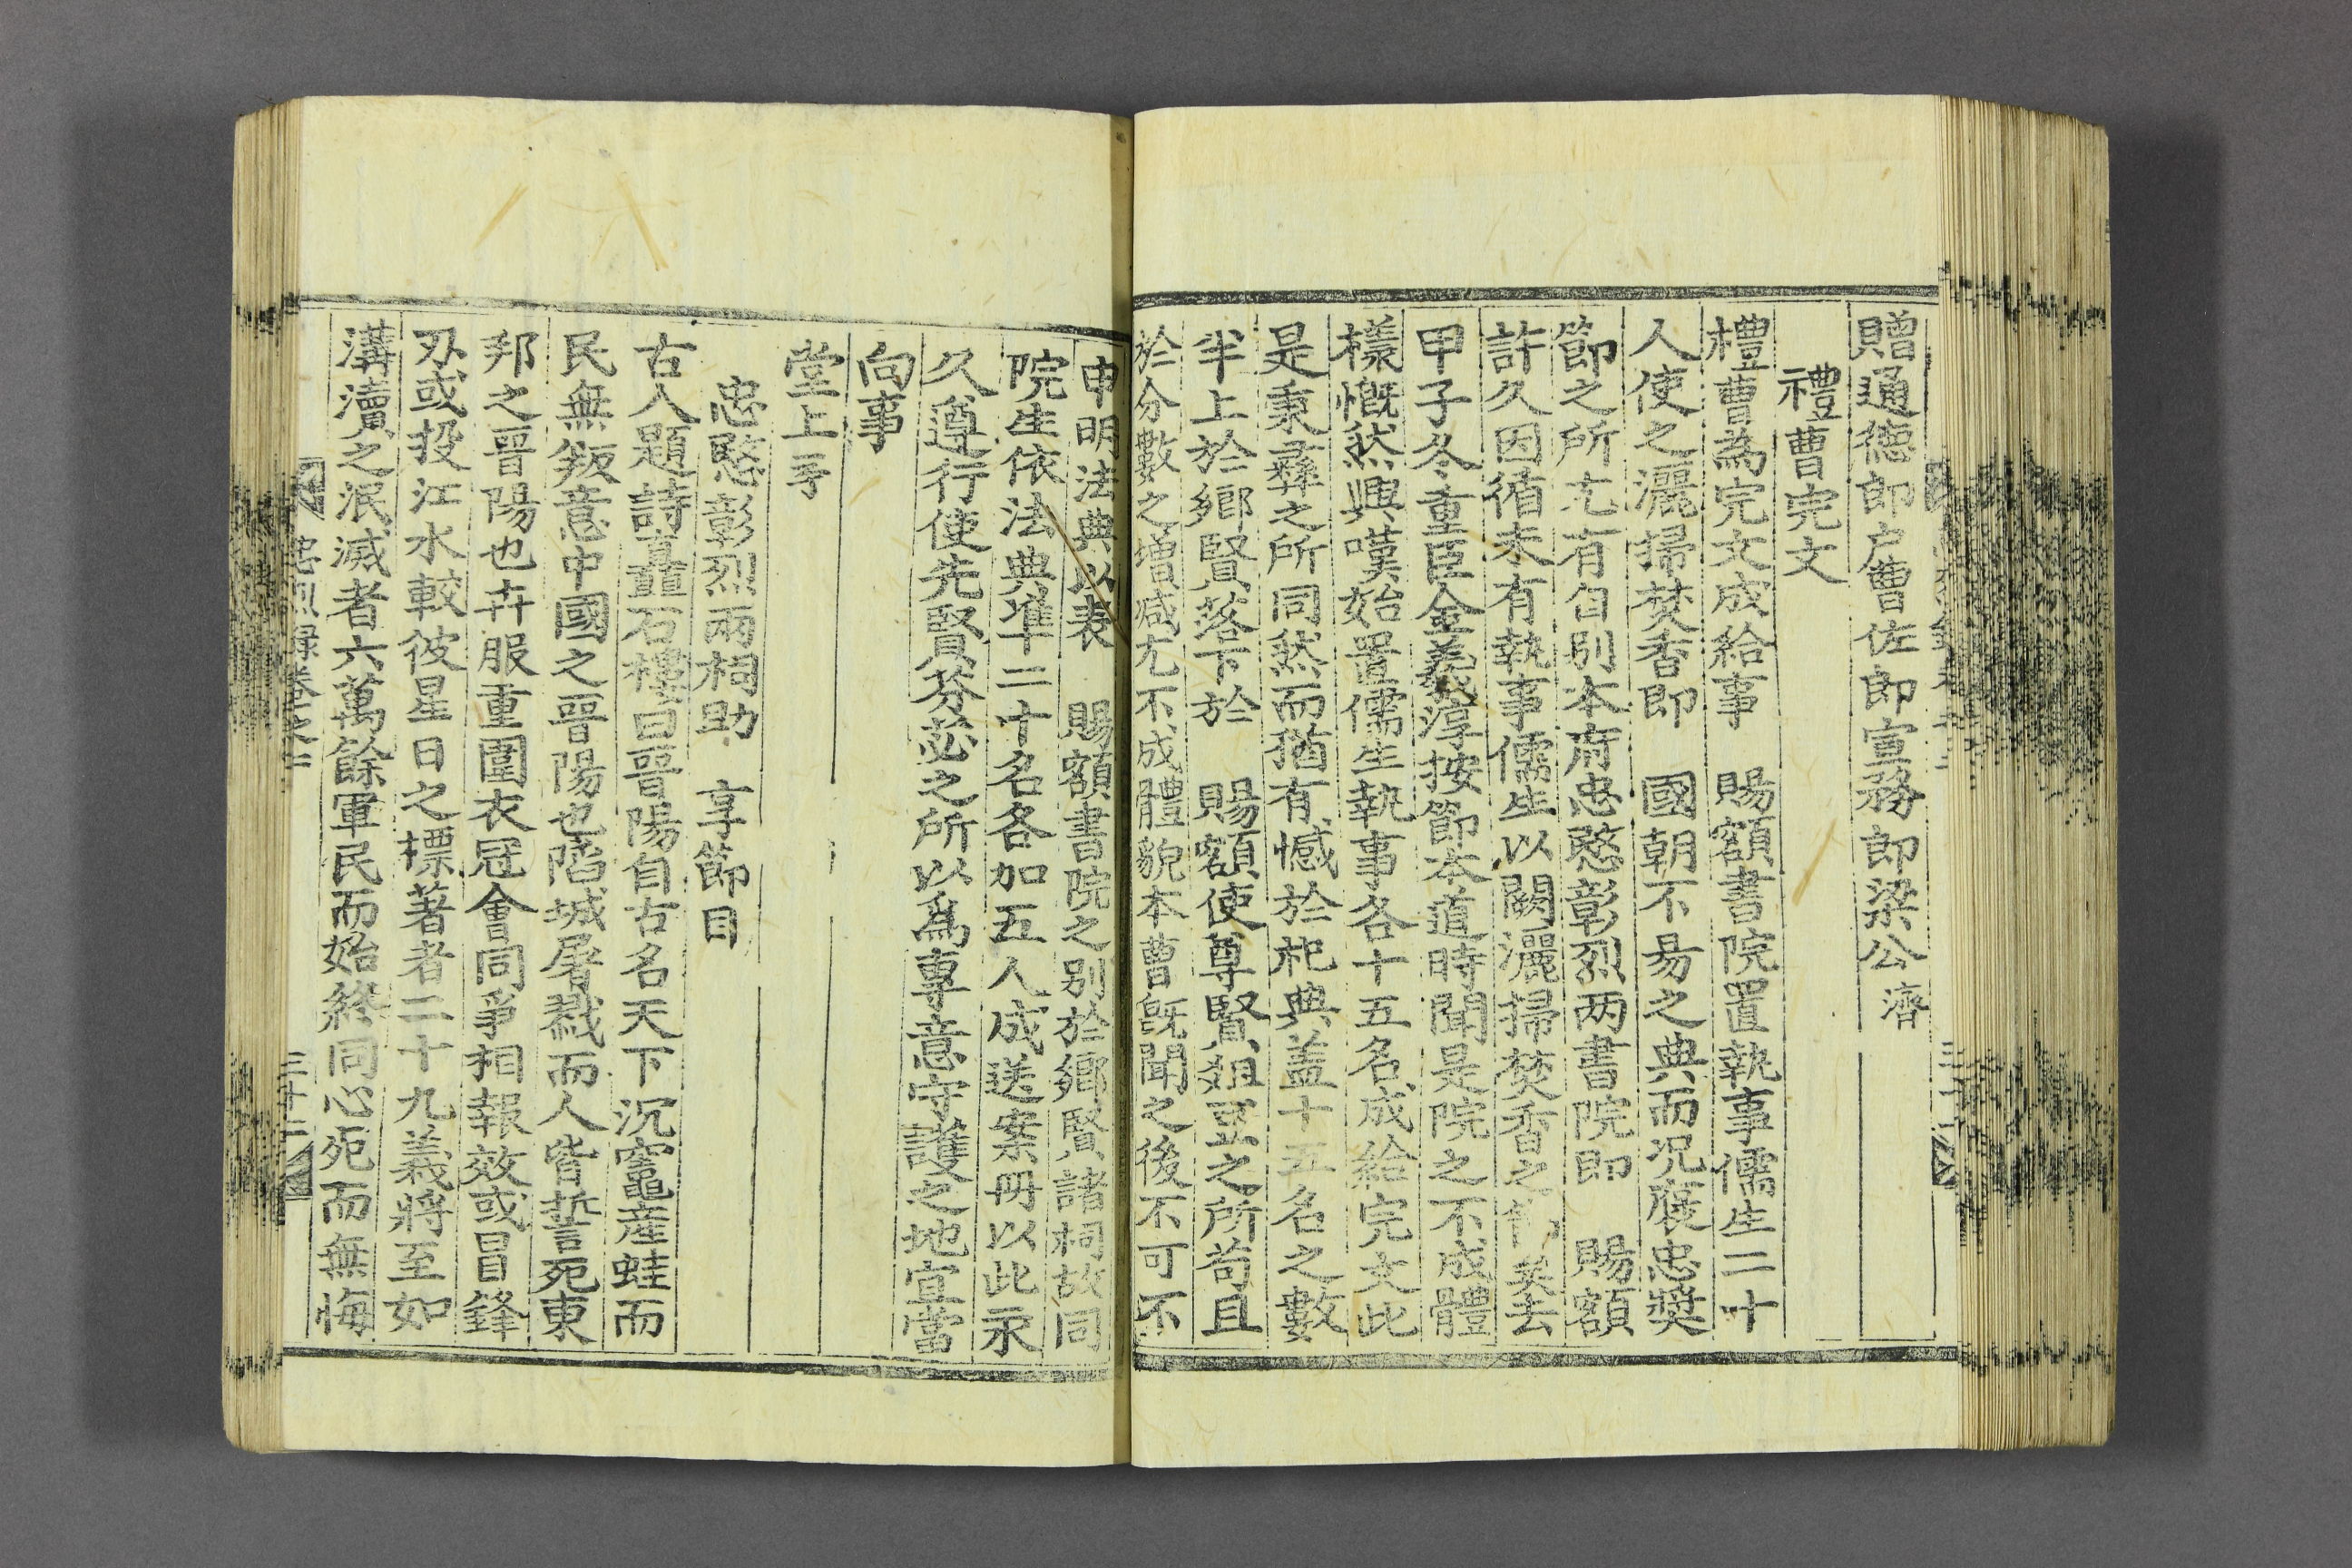 贈通德郎户曹佐郎宣務郎梁公濟
禮曹完文
禮曹爲完文成給事 賜額書院置執事儒生二十
人使之灑掃焚香卽 國朝不易之典而況褒忠奬
節之所尤有自别本府忠愍彰烈两書院卽 賜額
許久因循未有執事儒生以闕灑掃焚香之節矣去
甲子冬重臣金義淳按節本道時聞是院之不成體
樣慨然興嘆始置儒生執事各十五名成給完文此
是秉彛之所同然而猶有憾於祀典盖十五名之數
半上於鄉賢落下於 賜額使尊賢俎豆之所苟且
於分數之增减尤不成體貌本曹旣聞之後不可不
申明法典以表 賜額書院之别於鄉賢諸祠故同
院生依法典準二十名各加五人成送案册以此永
久遵行使先賢芬苾之所以爲專意守護之地宜當
向事
堂上 手
忠愍彰烈兩祠助 享節目
古人題詩矗石樓曰晉陽自古名天下沉竈産蛙而
民無叛意中國之晉陽也陷城屠戮而人皆誓死東
邦之晉陽也卉服重圍衣冠會同爭相報效或冒鋒
刃或投江水較彼星日之標著者二十九義將至如
溝瀆之泯滅者六萬餘軍民而始終同心死而無悔
忠烈錄卷之二 三十二